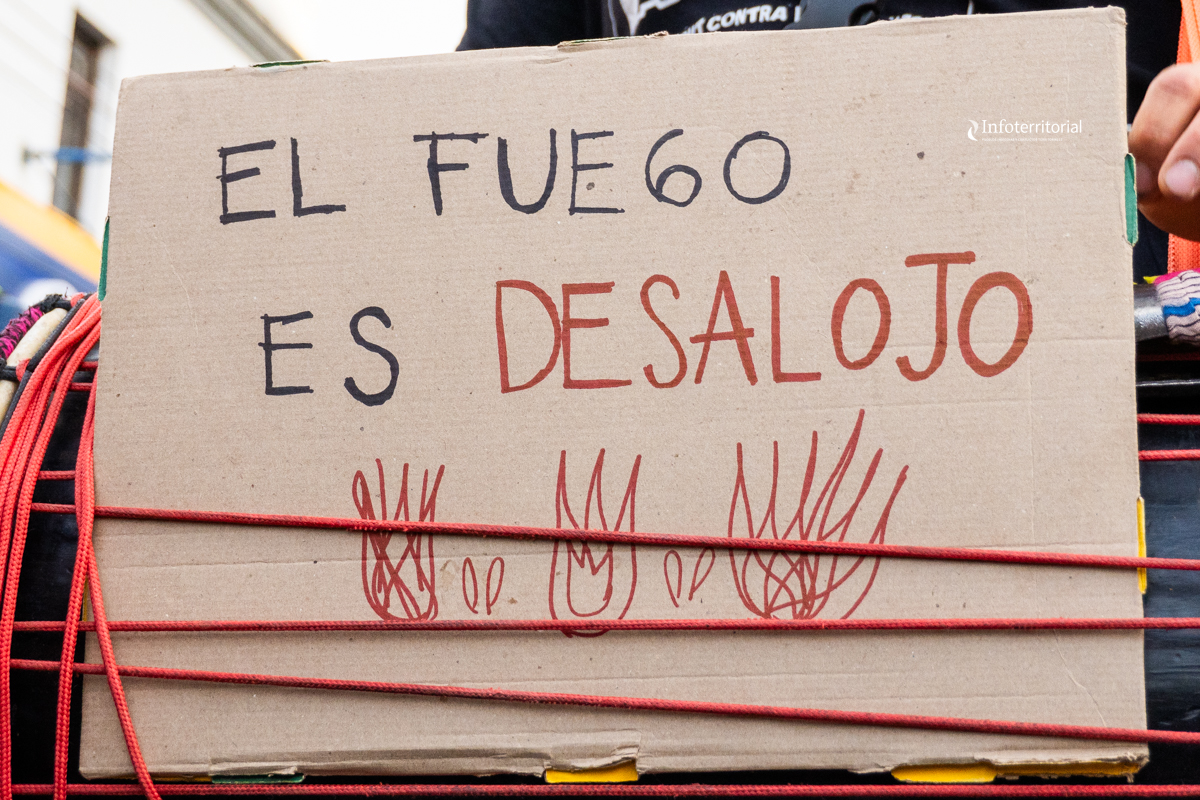 CONTRA
Infoterritorial
EL FUEGO
ES DESALOJO